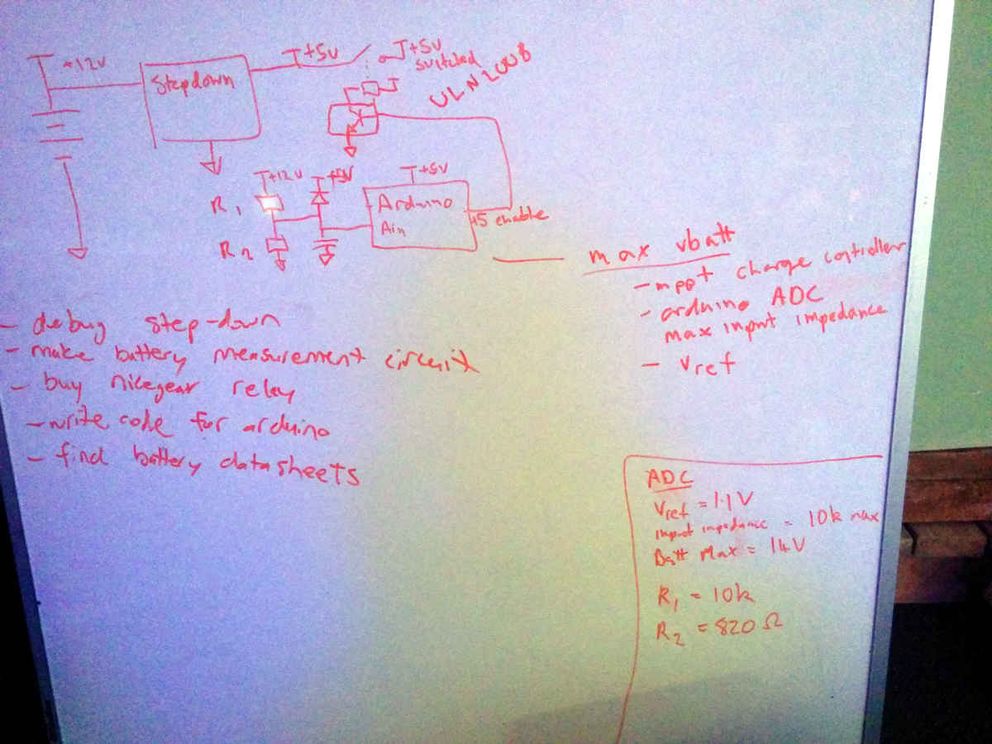 +12V
Stepdown
+5V
+5V
switched
+12V
+5V
R1
R2
Arduino
Ain
+5V
+5 enable
max vbatt
- mppt charge controller
- arduino ADC
max input impedance
- Vref
- debug step-down
- make battery measurement circuit
- buy nicegear relay
- write code for arduino
- find battery datasheets
ADC
Vref = 1.1V
input impedance = 10k max
Batt Max = 14V
R1 = 10k
R2 = 820Ω